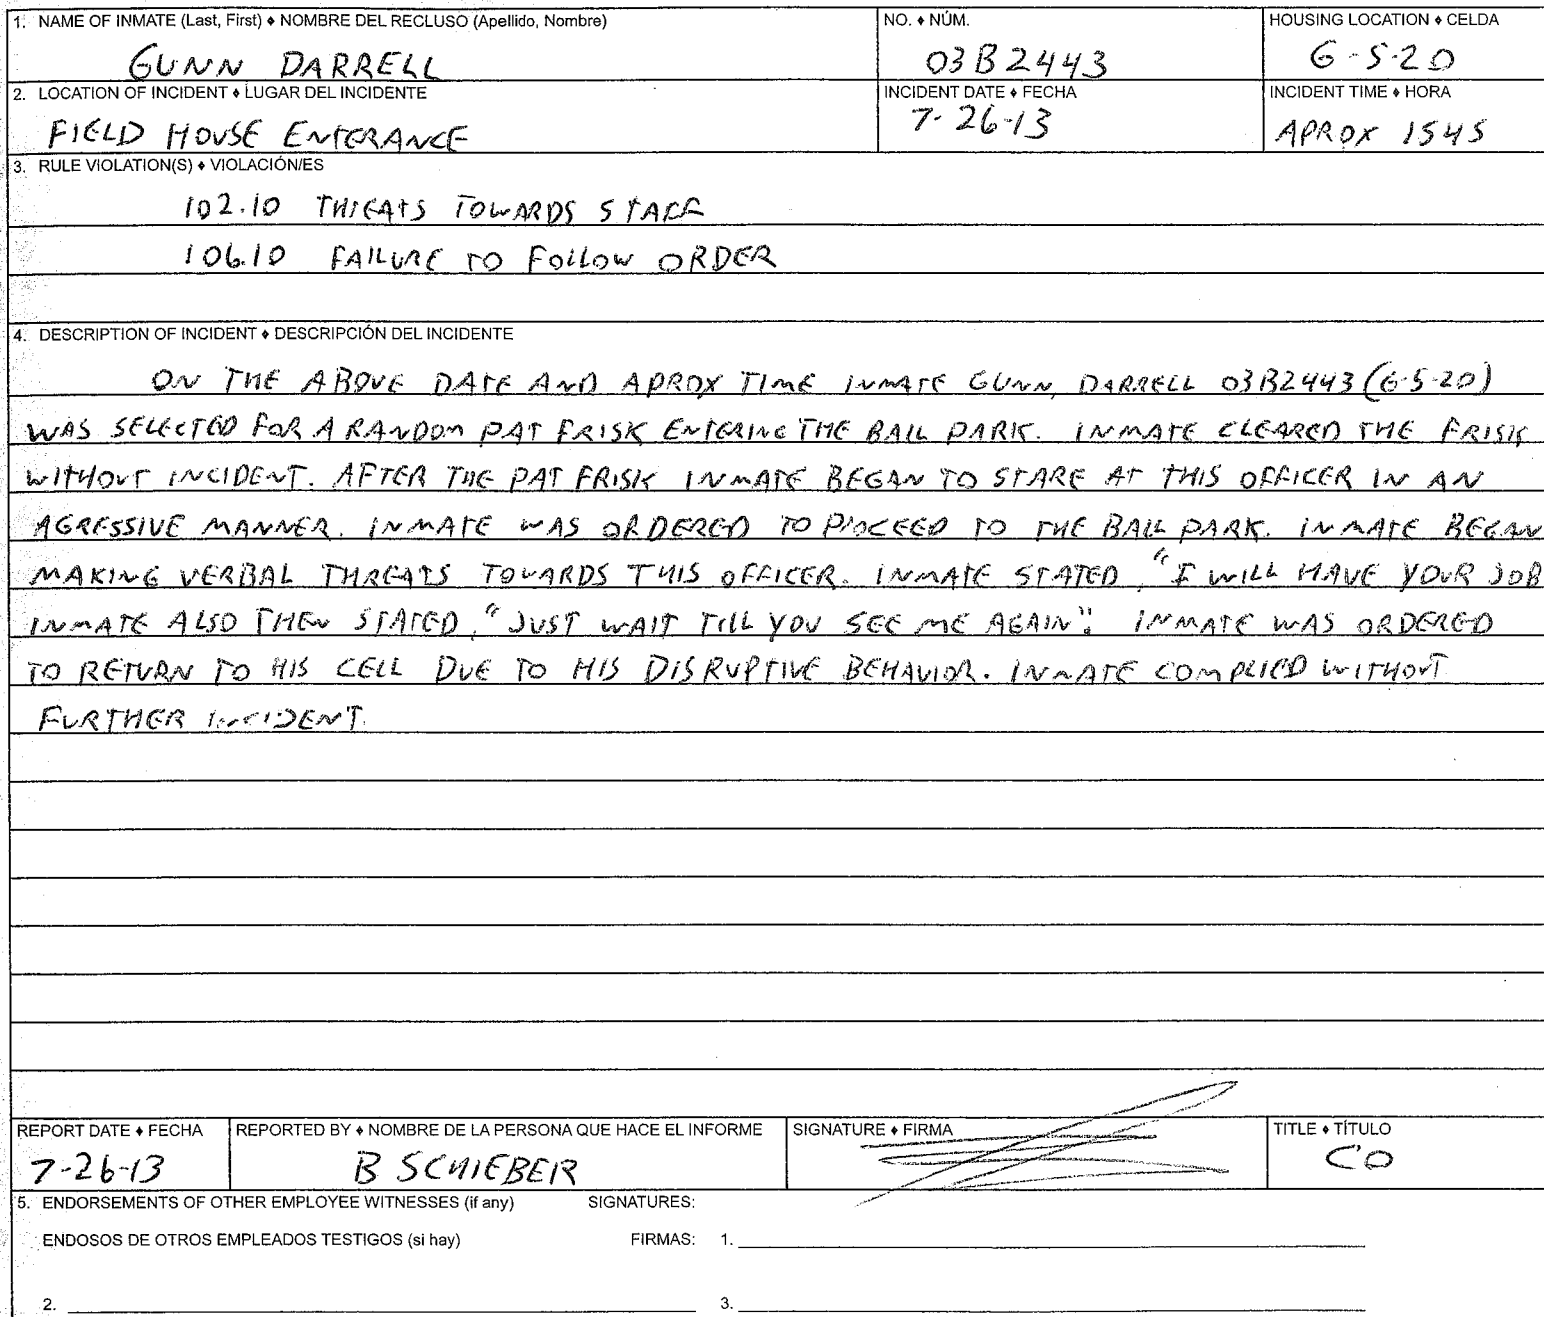 1. NAME OF INMATE (Last, First) ♦ NOMBRE DEL RECLUSO (Apellido, Nombre) NO. ♦ NÚM. HOUSING LOCATION ♦ CELDA
GUNN DARRELL 03B2443 G-5-20
2. LOCATION OF INCIDENT ♦ LUGAR DEL INCIDENTE INCIDENT DATE ♦ FECHA INCIDENT TIME ♦ HORA
FIELD HOUSE ENTERANCE 7-26-13 APROX 1545
3. RULE VIOLATION(S) ♦ VIOLACIÓN/ES
102.10 THREATS TOWARDS STAFF
106.10 FAILURE TO FOLLOW ORDER
4. DESCRIPTION OF INCIDENT ♦ DESCRIPCIÓN DEL INCIDENTE
ON THE ABOVE DATE AND APROX TIME INMATE GUNN, DARRELL 03B2443 (G-5-20)
WAS SELECTED FOR A RANDOM PAT FRISK ENTERING THE BALL PARK. INMATE CLEARED THE FRISK
WITHOUT INCIDENT. AFTER THE PAT FRISK INMATE BEGAN TO STARE AT THIS OFFICER IN AN
AGRESSIVE MANNER. INMATE WAS ORDERED TO PROCEED TO THE BALL PARK. INMATE BEGAN
MAKING VERBAL THREATS TOWARDS THIS OFFICER. INMATE STATED, "I WILL HAVE YOUR JOB
INMATE ALSO THEN STATED, "JUST WAIT TILL YOU SEE ME AGAIN". INMATE WAS ORDERED
TO RETURN TO HIS CELL DUE TO HIS DISRUPTIVE BEHAVIOR. INMATE COMPLIED WITHOUT
FURTHER INCIDENT.
REPORT DATE ♦ FECHA REPORTED BY ♦ NOMBRE DE LA PERSONA QUE HACE EL INFORME SIGNATURE ♦ FIRMA TITLE ♦ TÍTULO
7-26-13 B SCHIEBER CO
5. ENDORSEMENTS OF OTHER EMPLOYEE WITNESSES (if any) SIGNATURES:
ENDOSOS DE OTROS EMPLEADOS TESTIGOS (si hay) FIRMAS: 1.
2. 3.